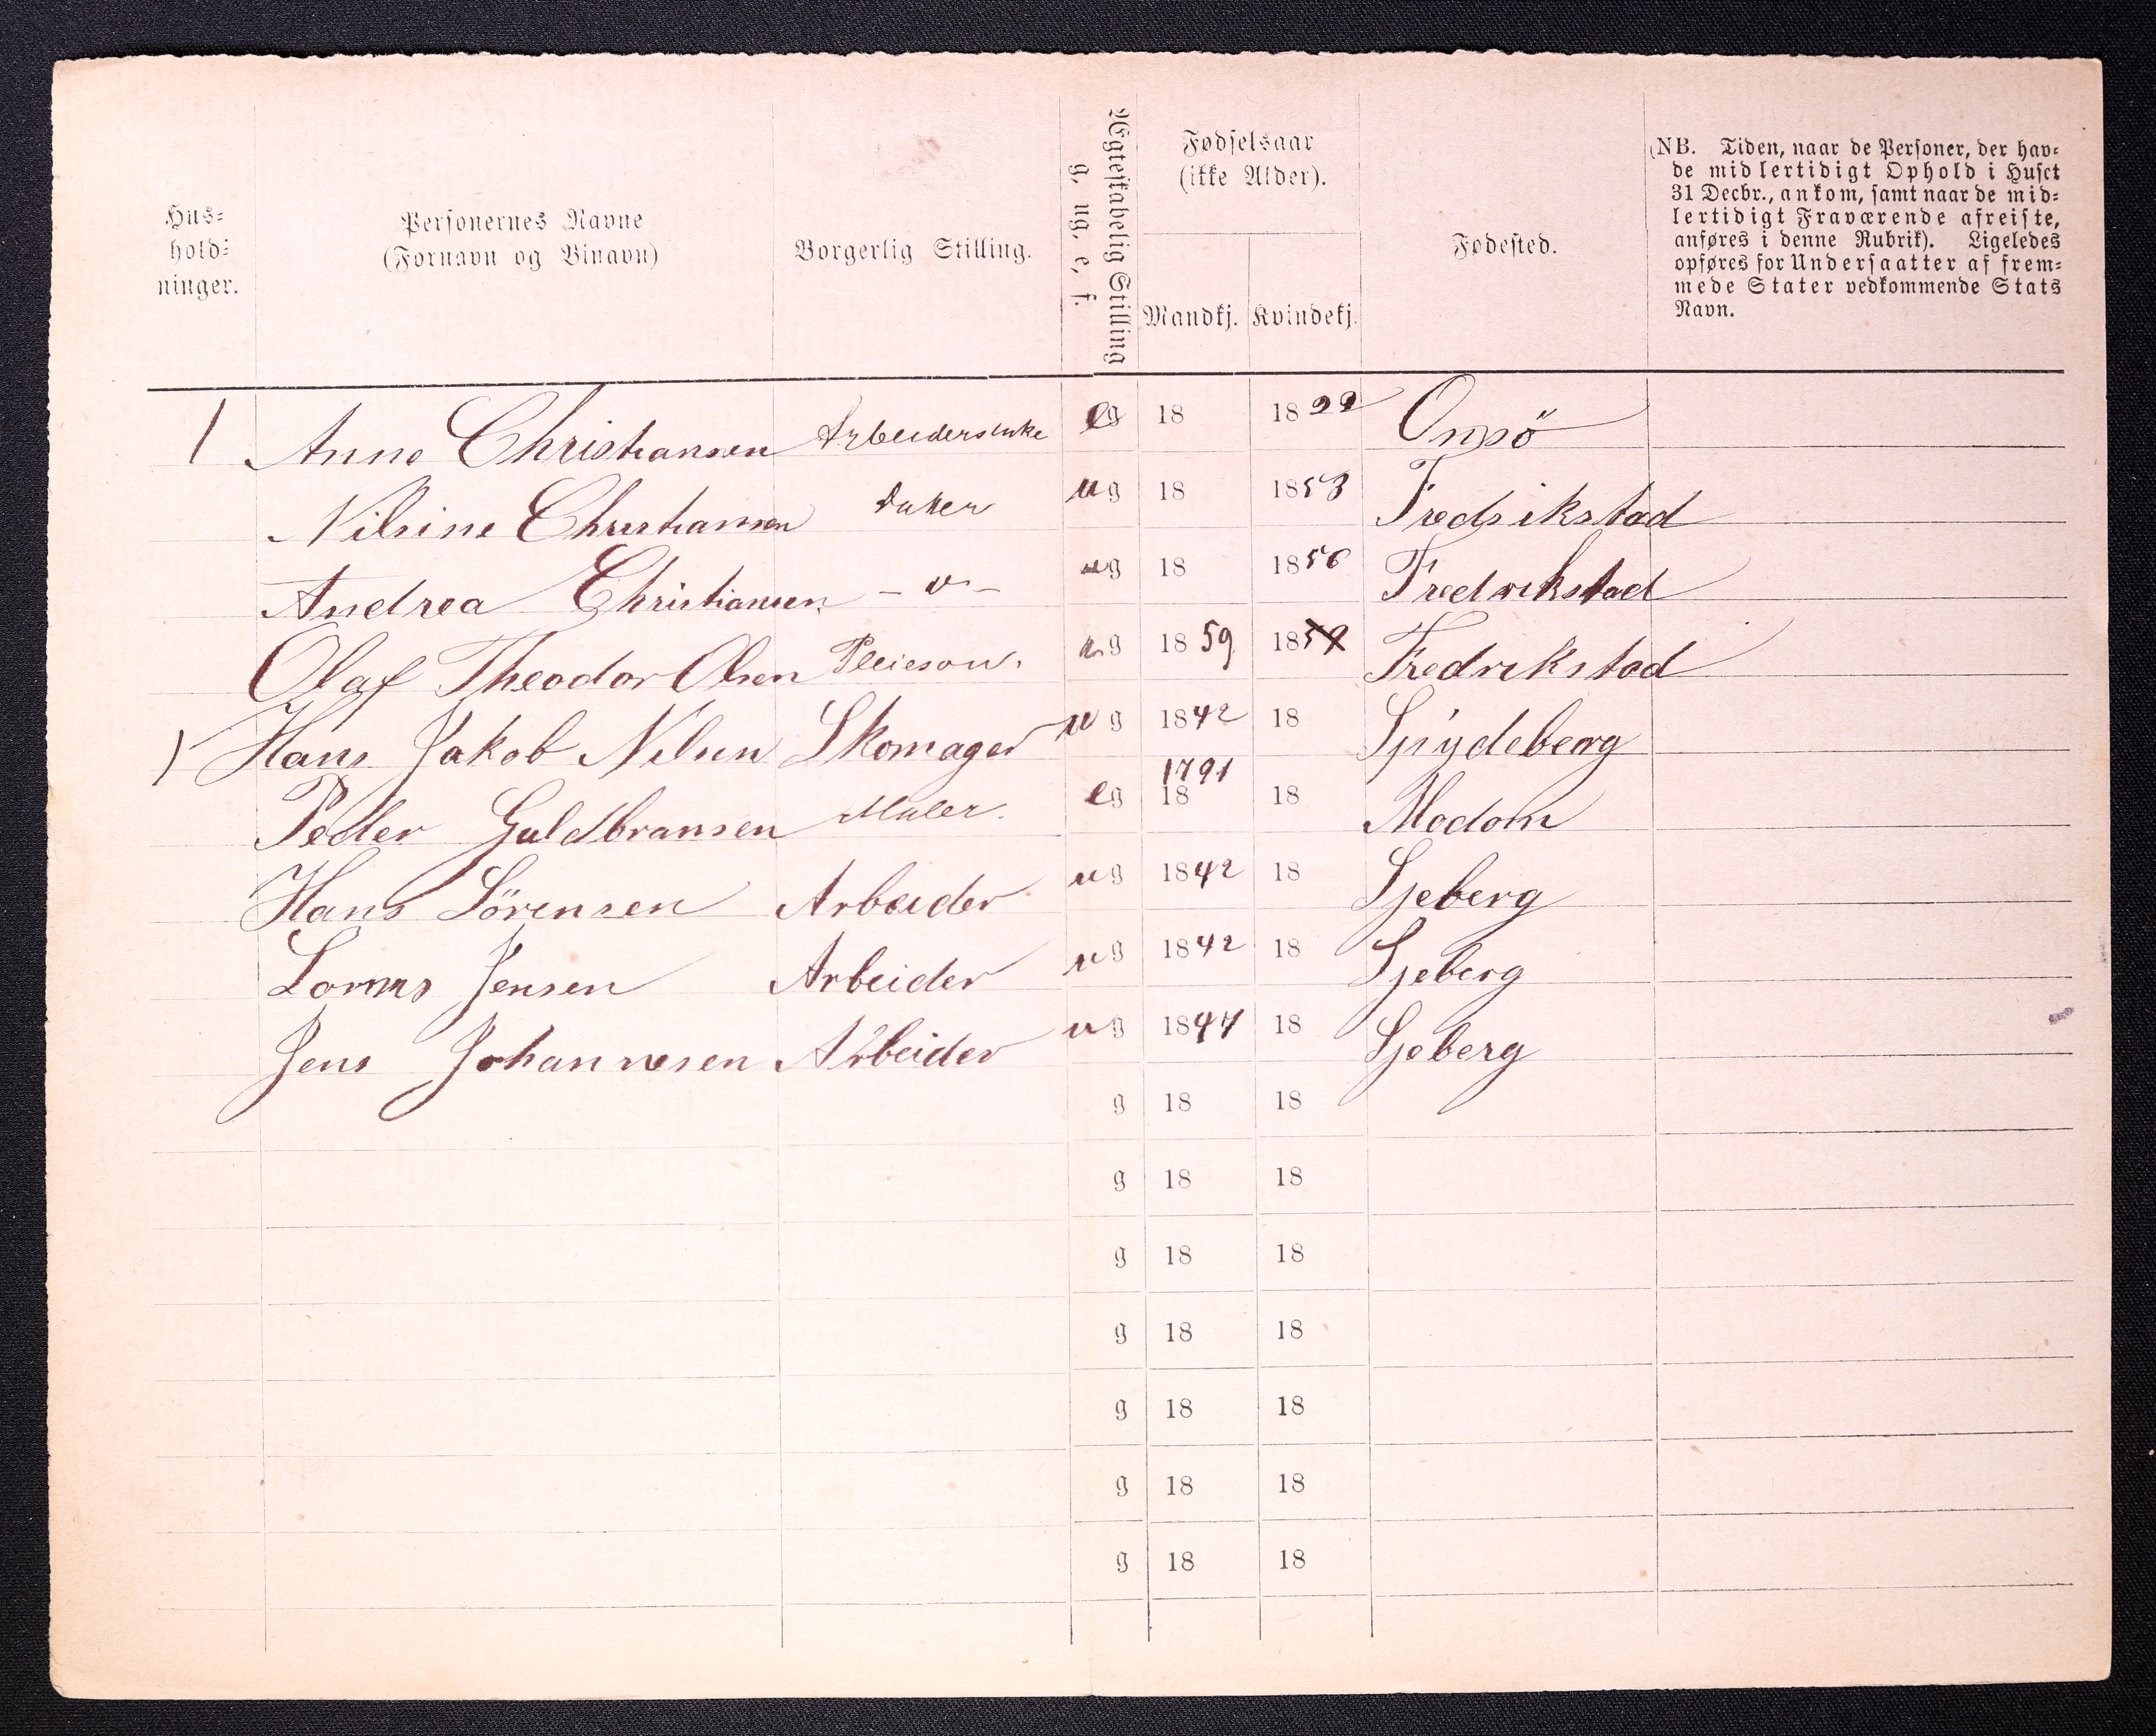 Hus-
hold-
ninger.
Personernes Navne
(Fornavn og Binavn)
Borgerlig Stilling.
Ægteskabelig Stilling
g, ug, e, f.
Fødselsaar
(ikke Alder).
Mandkj. Kvindekj.
Fødested.
(NB. Tiden, naar de Personer, der hav-
de midlertidigt Ophold i Huset
31 Decbr., ankom, samt naar de mid-
lertidigt Fraværende afreiste,
anføres i denne Rubrik). Ligeledes
opføres for Undersaatter af frem-
mede Stater vedkommende Stats
Navn.
1 Anne Christiansen Arbeidersenke eg 18 1822 Onsö
Nilsine Christiansen Datter ug 18 1853 Fredrikstad
Andrea Christiansen - " - ug 18 1856 Fredrikstad
Olaf Theodor Olsen Pleieson. ug 1859 18 Fredrikstad
1 Hans Jakob Nilsen Skomager ug 1842 18 Spydeberg
Petter Guldbransen Maler. eg 1791 18 18 Modom
Hans Sörensen Arbeider ug 1842 18 Sjeberg
Jensen Arbeider ug 1842 18 Sjeberg
Jens Johannesen Arbeider ug 1847 18 Sjeberg
g 18 18
g 18 18
g 18 18
g 18 18
g 18 18
g 18 18
g 18 18